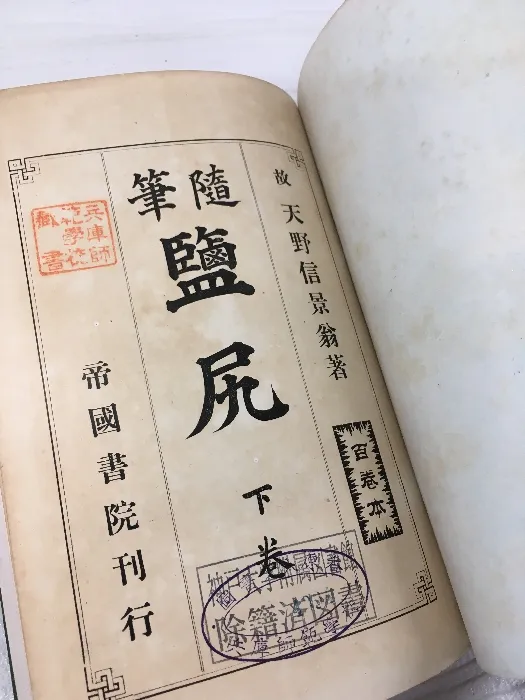 故 天野信景翁著
百卷本
隨筆
鹽尻
下卷
帝國書院刊行
兵庫師
範學校
藏書
除籍済図書